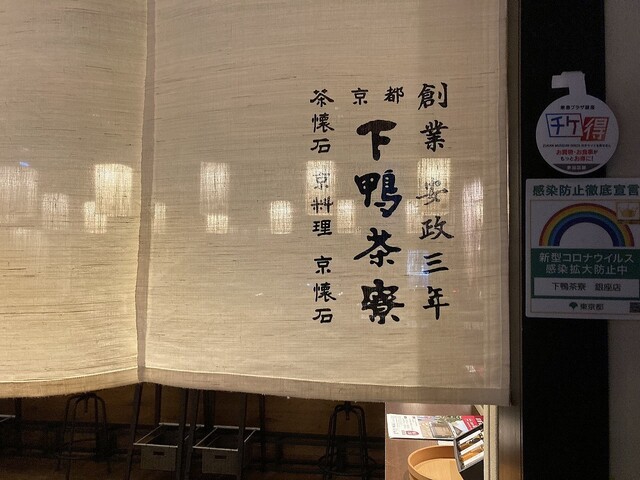 創業 安政三年
京都
下鴨茶寮
茶懐石 京料理 京懐石
チケ得
お買物・お食事が
もっとお得に!
感染防止徹底宣言
新型コロナウイルス
感染拡大防止中
下鴨茶寮 銀座店
東京都